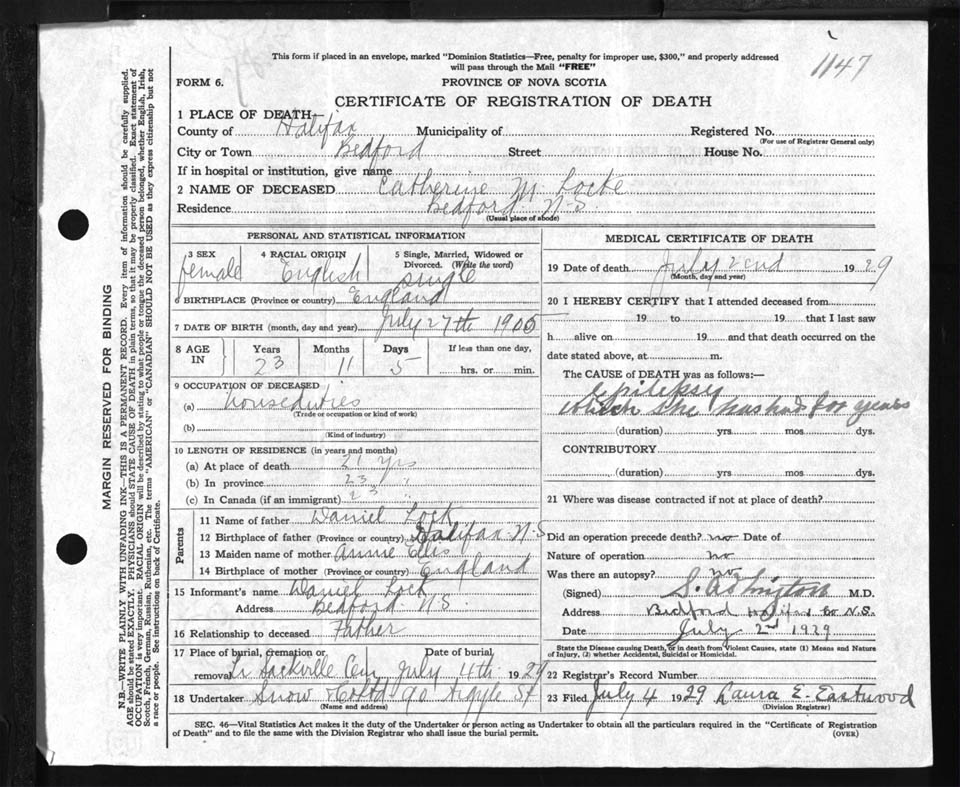 This form if placed in an envelope, marked "Dominion Statistics—Free, penalty for improper use, $300," and properly addressed
will pass through the Mail "FREE"
1147
FORM 6.
PROVINCE OF NOVA SCOTIA
CERTIFICATE OF REGISTRATION OF DEATH
1 PLACE OF DEATH—
County of Halifax Municipality of Registered No.
(For use of Registrar General only)
City or Town Bedford Street House No.
If in hospital or institution, give name
2 NAME OF DECEASED Catherine M. Locke
Residence Bedford N-S.
(Usual place of abode)
PERSONAL AND STATISTICAL INFORMATION
3 SEX 4 RACIAL ORIGIN 5 Single, Married, Widowed or Divorced. (Write the word)
female English single
6 BIRTHPLACE (Province or country) England
7 DATE OF BIRTH (month, day and year) July 27th 1905
8 AGE IN Years Months Days If less than one day,
23 11 5 hrs. or min.
9 OCCUPATION OF DECEASED
(a) house duties
(Trade or occupation or kind of work)
(b)
(Kind of industry)
10 LENGTH OF RESIDENCE (in years and months)
(a) At place of death 21 yrs
(b) In province 23 "
(c) In Canada (if an immigrant) 23 "
Parents
11 Name of father Daniel Lock
12 Birthplace of father (Province or country) Halifax N-S
13 Maiden name of mother Annie Ellis
14 Birthplace of mother (Province or country) England
15 Informant's name Daniel Lock
Address Bedford N.S.
16 Relationship to deceased Father
17 Place of burial, cremation or removal Date of burial
Lr Sackville Cem July 4th 1929
18 Undertaker Snow & Co Ltd 90 Argyle St
(Name and address)
MEDICAL CERTIFICATE OF DEATH
19 Date of death July 2nd 1929
(Month, day and year)
20 I HEREBY CERTIFY that I attended deceased from
19 to 19 that I last saw
h alive on 19 and that death occurred on the
date stated above, at m.
The CAUSE of DEATH was as follows:—
Epilepsy
which she has had for years
(duration) yrs mos dys.
CONTRIBUTORY
(duration) yrs mos dys.
21 Where was disease contracted if not at place of death?
Did an operation precede death? no Date of
Nature of operation no
Was there an autopsy? no
(Signed) M.D.
Address Bedford Halifax Co N.S.
Date July 2nd 1929
State the Disease causing Death, or in death from Violent Causes, state (1) Means and Nature
of Injury, (2) whether Accidental, Suicidal or Homicidal.
22 Registrar's Record Number
23 Filed July 4 1929 Laura E. Eastwood
(Division Registrar)
SEC. 46—Vital Statistics Act makes it the duty of the Undertaker or person acting as Undertaker to obtain all the particulars required in the "Certificate of Registration
of Death" and to file the same with the Division Registrar who shall issue the burial permit.
(OVER)
MARGIN RESERVED FOR BINDING
N.B.—WRITE PLAINLY WITH UNFADING INK—THIS IS A PERMANENT RECORD. Every item of information should be carefully supplied.
AGE should be stated EXACTLY. PHYSICIANS should STATE CAUSE OF DEATH in plain terms, so that it may be properly classified. Exact statement of
OCCUPATION is very important. RACIAL ORIGIN will be described by stating to what people or tongue the deceased person belonged, whether English, Irish,
Scotch, French, German, Russian, Ruthenian, etc. The terms "AMERICAN" or "CANADIAN" SHOULD NOT BE USED as they express citizenship but not
a race or people. See instructions on back of Certificate.